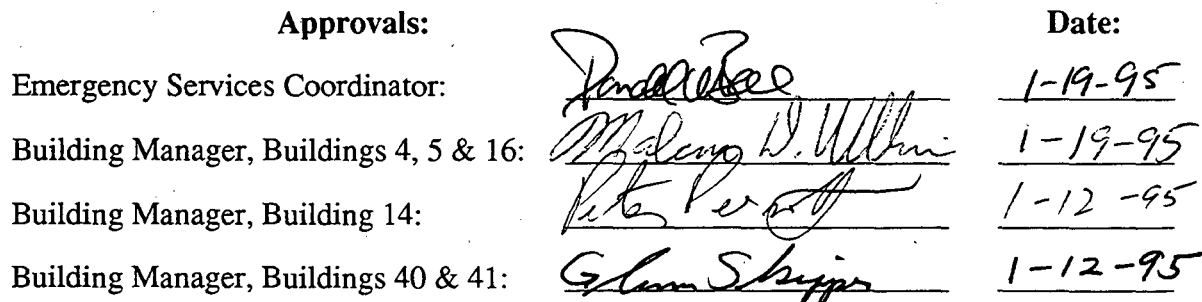 Approvals: Date:
Emergency Services Coordinator: 1-19-95
Building Manager, Buildings 4, 5 & 16: D. 1-19-95
Building Manager, Building 14: Peter 1-12-95
Building Manager, Buildings 40 & 41: Glenn Skipper 1-12-95